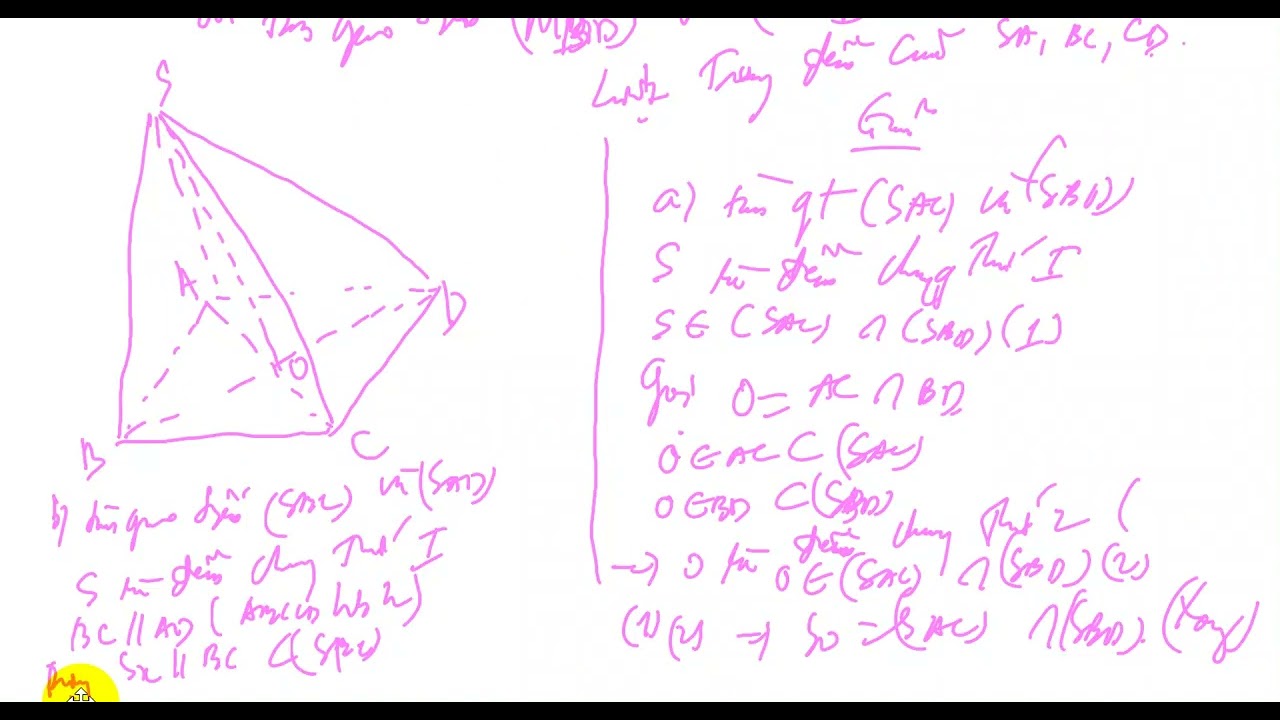 (MBD)
SA, BC, CD.
Lượt Trung điểm của
Giải
S
A
D
O
B
C
a) tìm qt (SAC) và (SBD)
S là điểm chung thứ I
S ∈ (SAC) ∩ (SBD) (1)
Gọi O = AC ∩ BD
O ∈ AC ⊂ (SAC)
O ∈ BD ⊂ (SBD)
→ O là điểm chung thứ 2 (
O ∈ (SAC) ∩ (SBD) (2)
(1) (2) ⇒ SO = (SAC) ∩ (SBD). (Xong)
b) tìm giao tuyến (SBC) và (SAD)
S là điểm chung thứ I
BC // AD (ABCD hbh)
Sx // BC ⊂ (SBC)